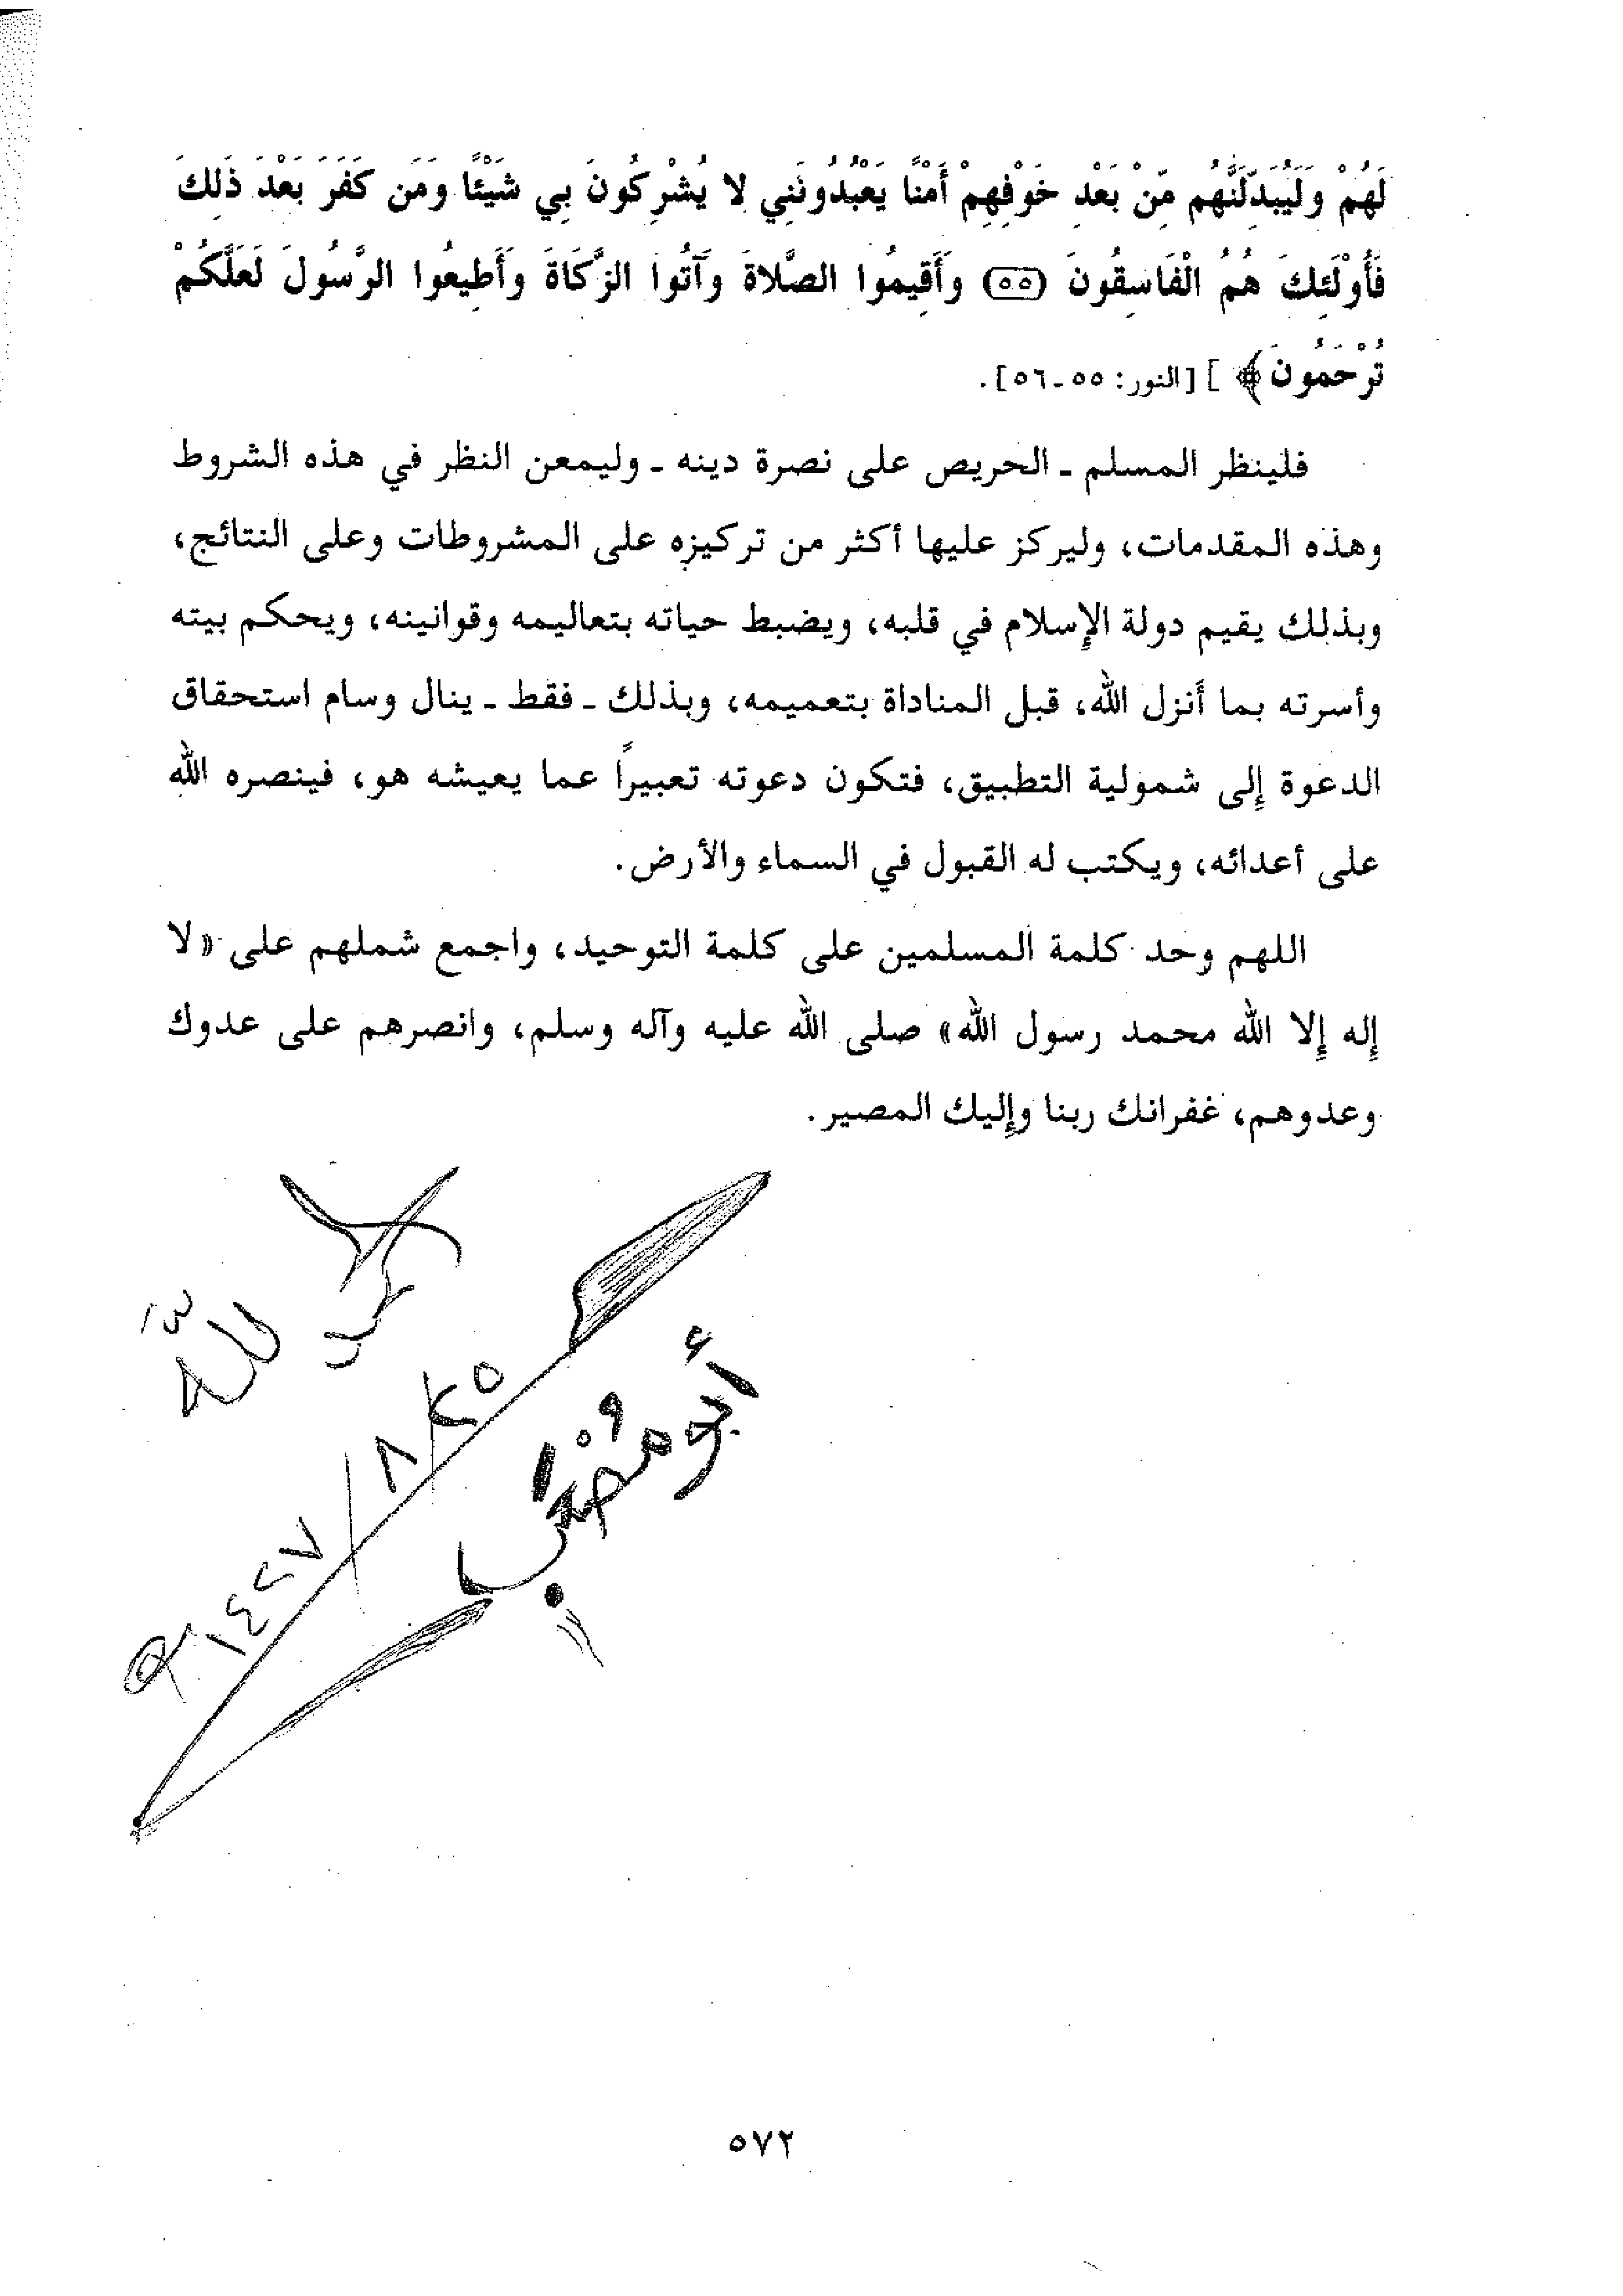 لَهُمْ وَلَيُبَدِّلَنَّهُم مِّنْ بَعْدِ خَوْفِهِمْ أَمْنًا يَعْبُدُونَنِي لا يُشْرِكُونَ بِي شَيْئًا وَمَن كَفَرَ بَعْدَ ذَلِكَ
فَأُوْلَئِكَ هُمُ الْفَاسِقُونَ (٥٥) وَأَقِيمُوا الصَّلاةَ وَآتُوا الزَّكَاةَ وَأَطِيعُوا الرَّسُولَ لَعَلَّكُمْ
تُرْحَمُونَ﴾ ] [النور: ٥٥ - ٥٦].
فلينظر المسلم - الحريص على نصرة دينه - وليمعن النظر في هذه الشروط
وهذه المقدمات، وليركز عليها أكثر من تركيزه على المشروطات وعلى النتائج،
وبذلك يقيم دولة الإسلام في قلبه، ويضبط حياته بتعاليمه وقوانينه، ويحكم بيته
وأسرته بما أنزل الله، قبل المناداة بتعميمه، وبذلك - فقط - ينال وسام استحقاق
الدعوة إلى شمولية التطبيق، فتكون دعوته تعبيراً عما يعيشه هو، فينصره الله
على أعدائه، ويكتب له القبول في السماء والأرض.
اللهم وحد كلمة المسلمين على كلمة التوحيد، واجمع شملهم على «لا
إله إلا الله محمد رسول الله» صلى الله عليه وآله وسلم، وانصرهم على عدوك
وعدوهم، غفرانك ربنا وإليك المصير.
الحمد لله
٢٥ / ٨ / ١٤٢٧ هـ
٥٧٢